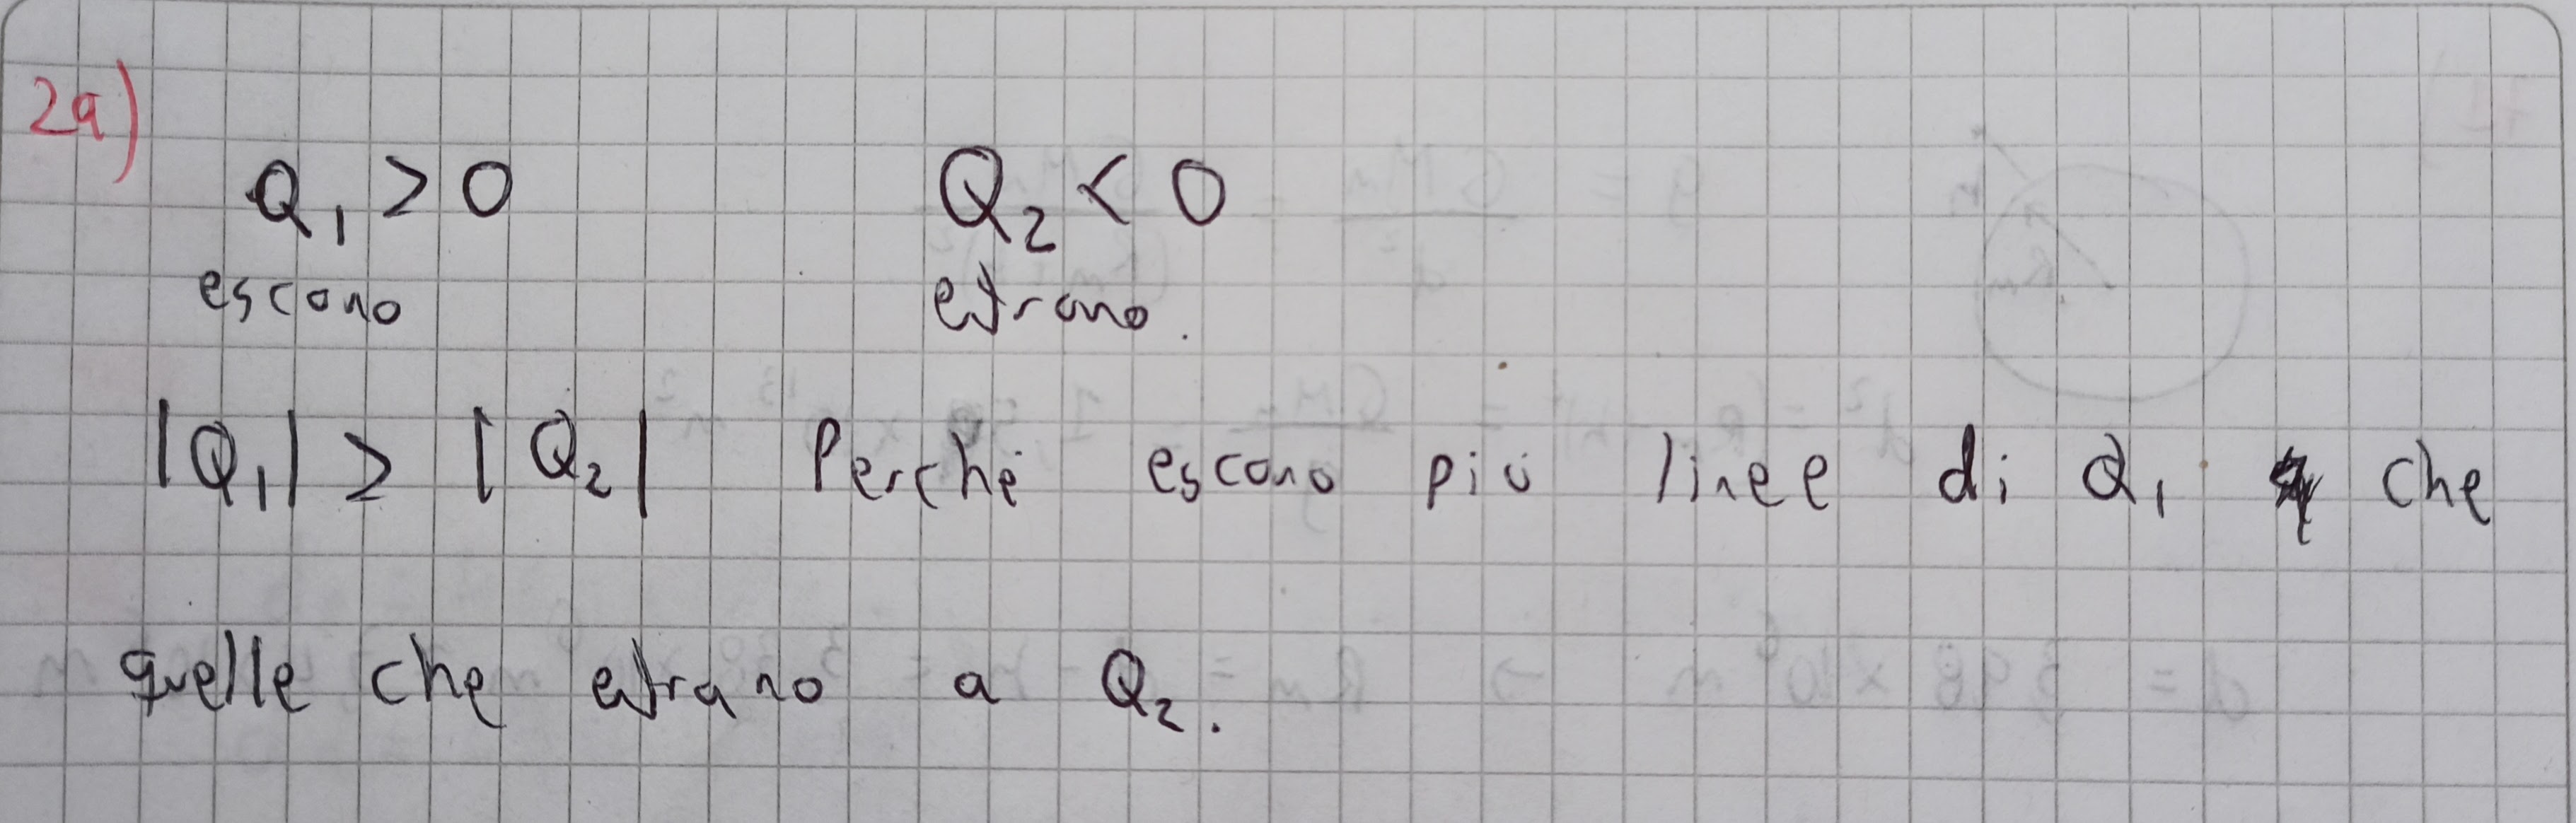 2a)
Q₁ > 0 Q₂ < 0
escono entrano.
|Q₁| > |Q₂| Perché escono più linee di Q₁ che
quelle che entrano a Q₂.